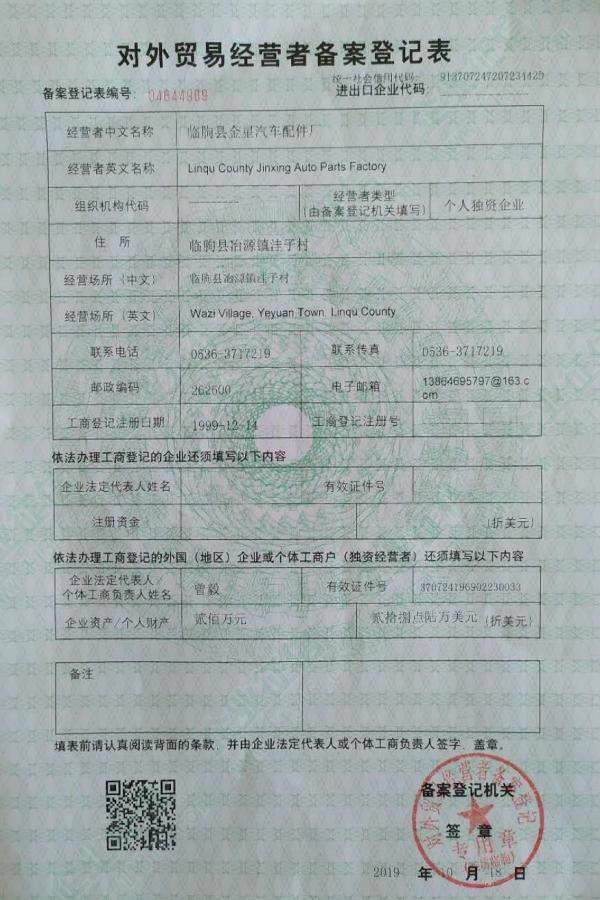 对外贸易经营者备案登记表
统一社会信用代码: 913707247207234429
备案登记表编号: 04644909 进出口企业代码:
经营者中文名称 临朐县金星汽车配件厂
经营者英文名称 Linqu County Jinxing Auto Parts Factory
组织机构代码 经营者类型 (由备案登记机关填写) 个人独资企业
住 所 临朐县冶源镇洼子村
经营场所(中文) 临朐县冶源镇洼子村
经营场所(英文) Wazi Village, Yeyuan Town, Linqu County
联系电话 0536-3717219 联系传真 0536-3717219
邮政编码 262600 电子邮箱 13864695797@163.com
工商登记注册日期 1999-12-14 工商登记注册号
依法办理工商登记的企业还须填写以下内容
企业法定代表人姓名 有效证件号
注册资金 (折美元)
依法办理工商登记的外国(地区)企业或个体工商户(独资经营者)还须填写以下内容
企业法定代表人/ 个体工商负责人姓名 曾毅 有效证件号 370724196902230033
企业资产/个人财产 贰佰万元 贰拾捌点陆万美元 (折美元)
备注
填表前请认真阅读背面的条款,并由企业法定代表人或个体工商负责人签字、盖章。
对外贸易经营者备案登记
备案登记机关
签 章
专用章
2019 年 10 月 18 日